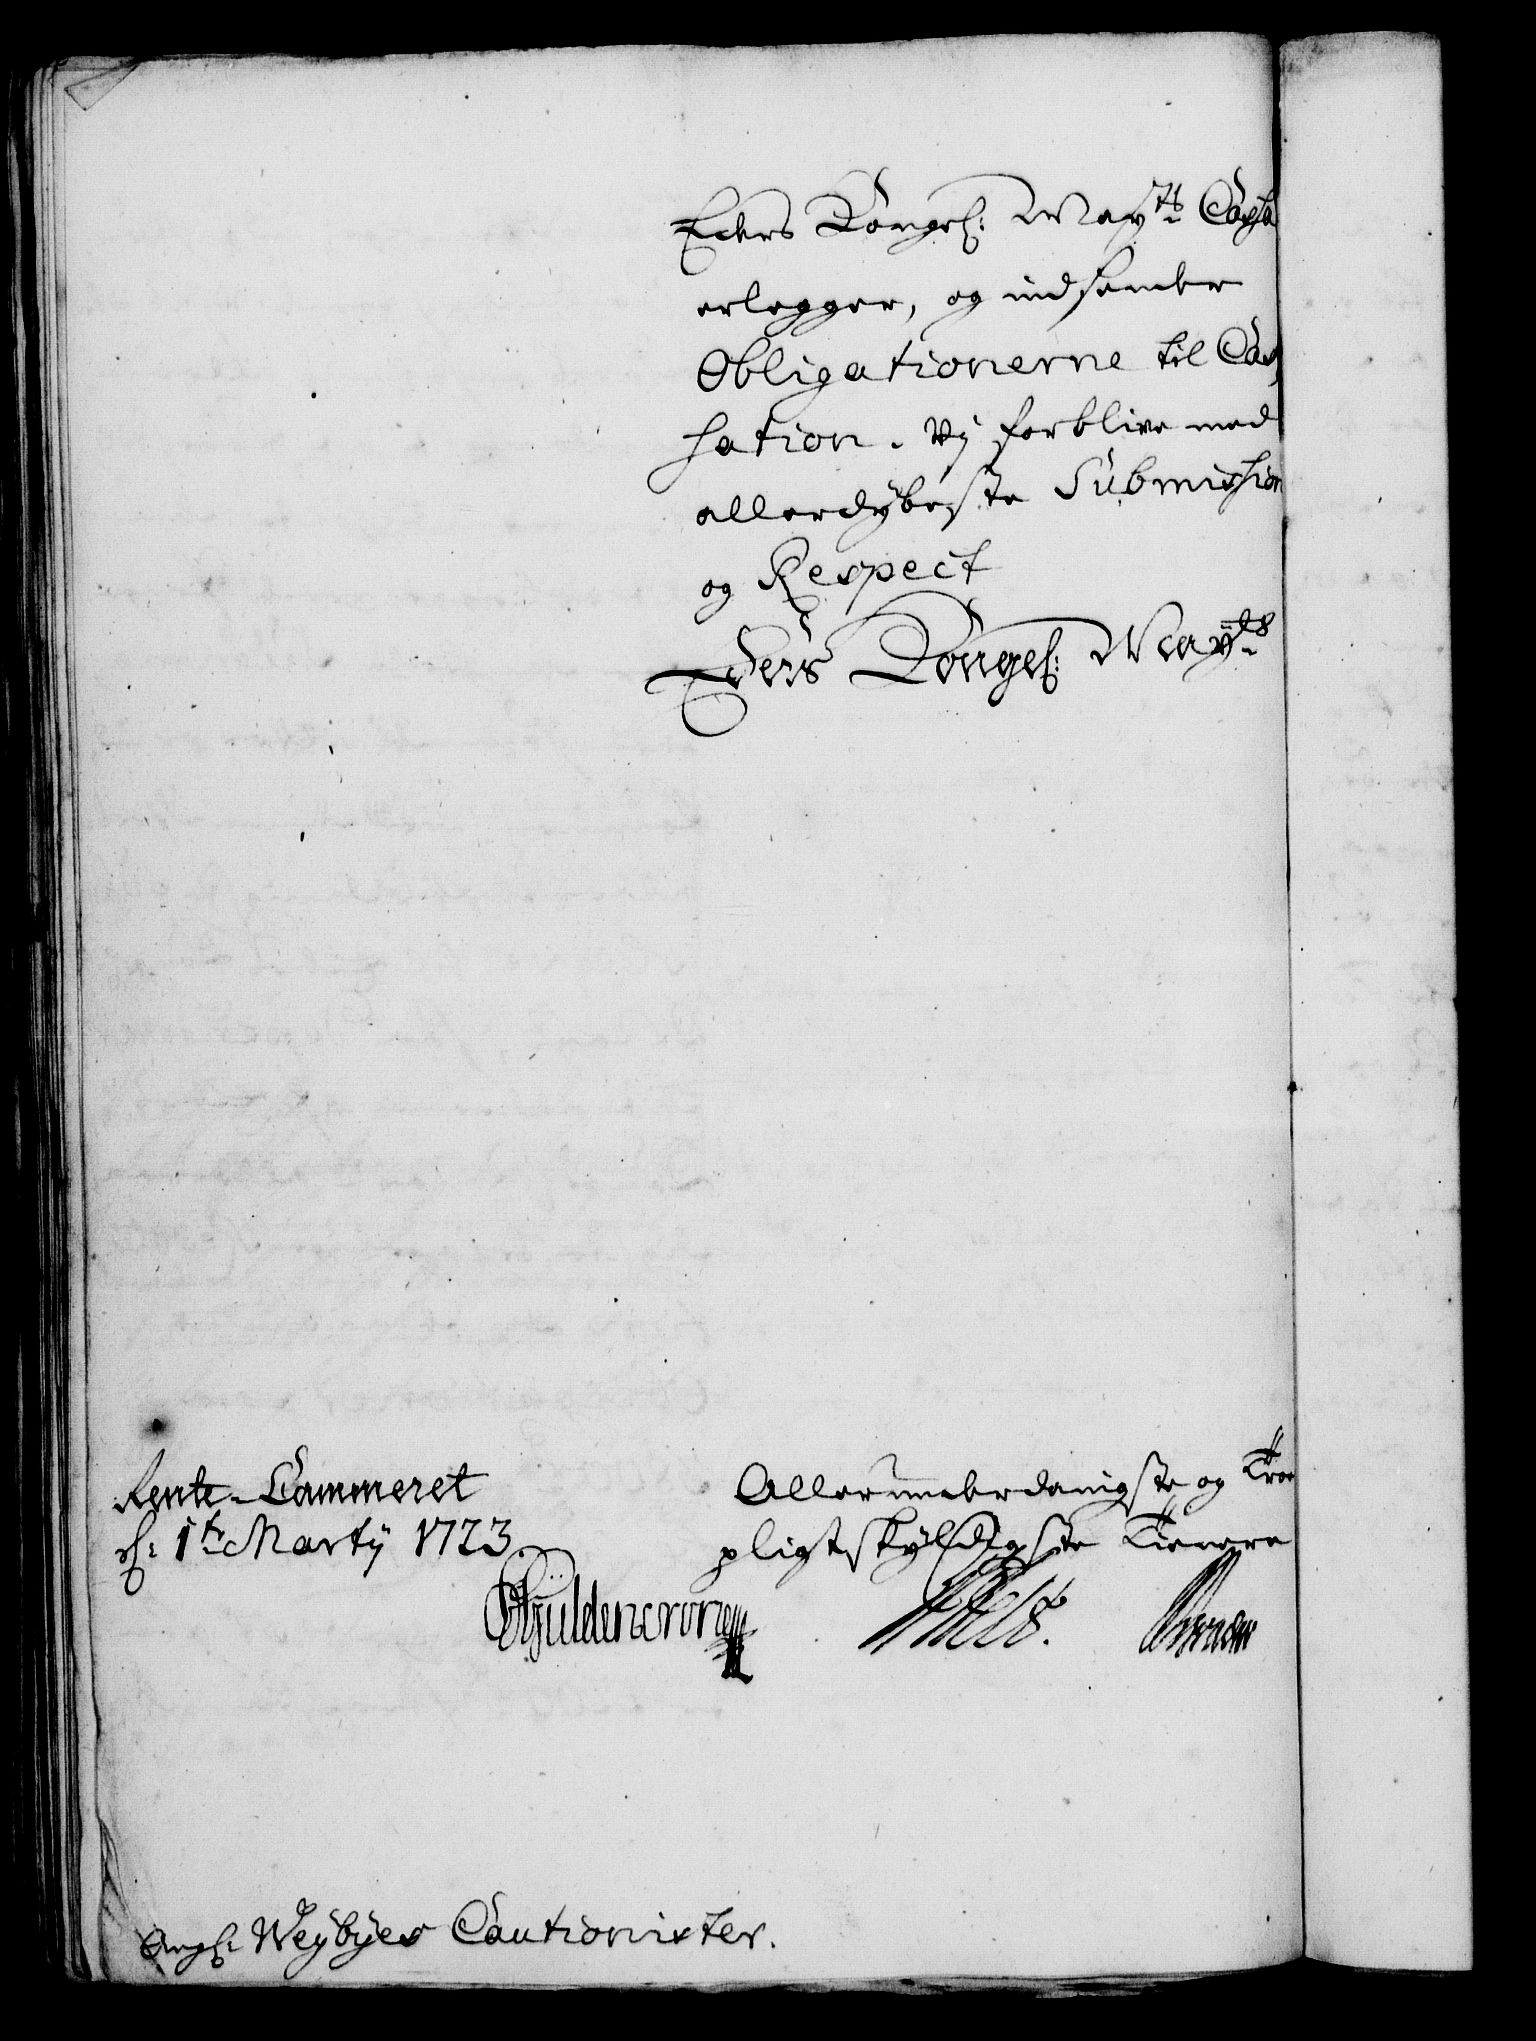 Eders Kongel: May:ts Cassa
erlegger, og indsender
Obligationerne til Cas¬
sation. Vi forblive med
allerdybeste Submission
og Respect
Eders Kongel: May:ts
Rente-Cammeret
d: 1te Martij 1723.
Allerunderdanigste og Troe
pligtskyldigste Tienere
Gyldencrone
Ang: Weybyes Cautionister.